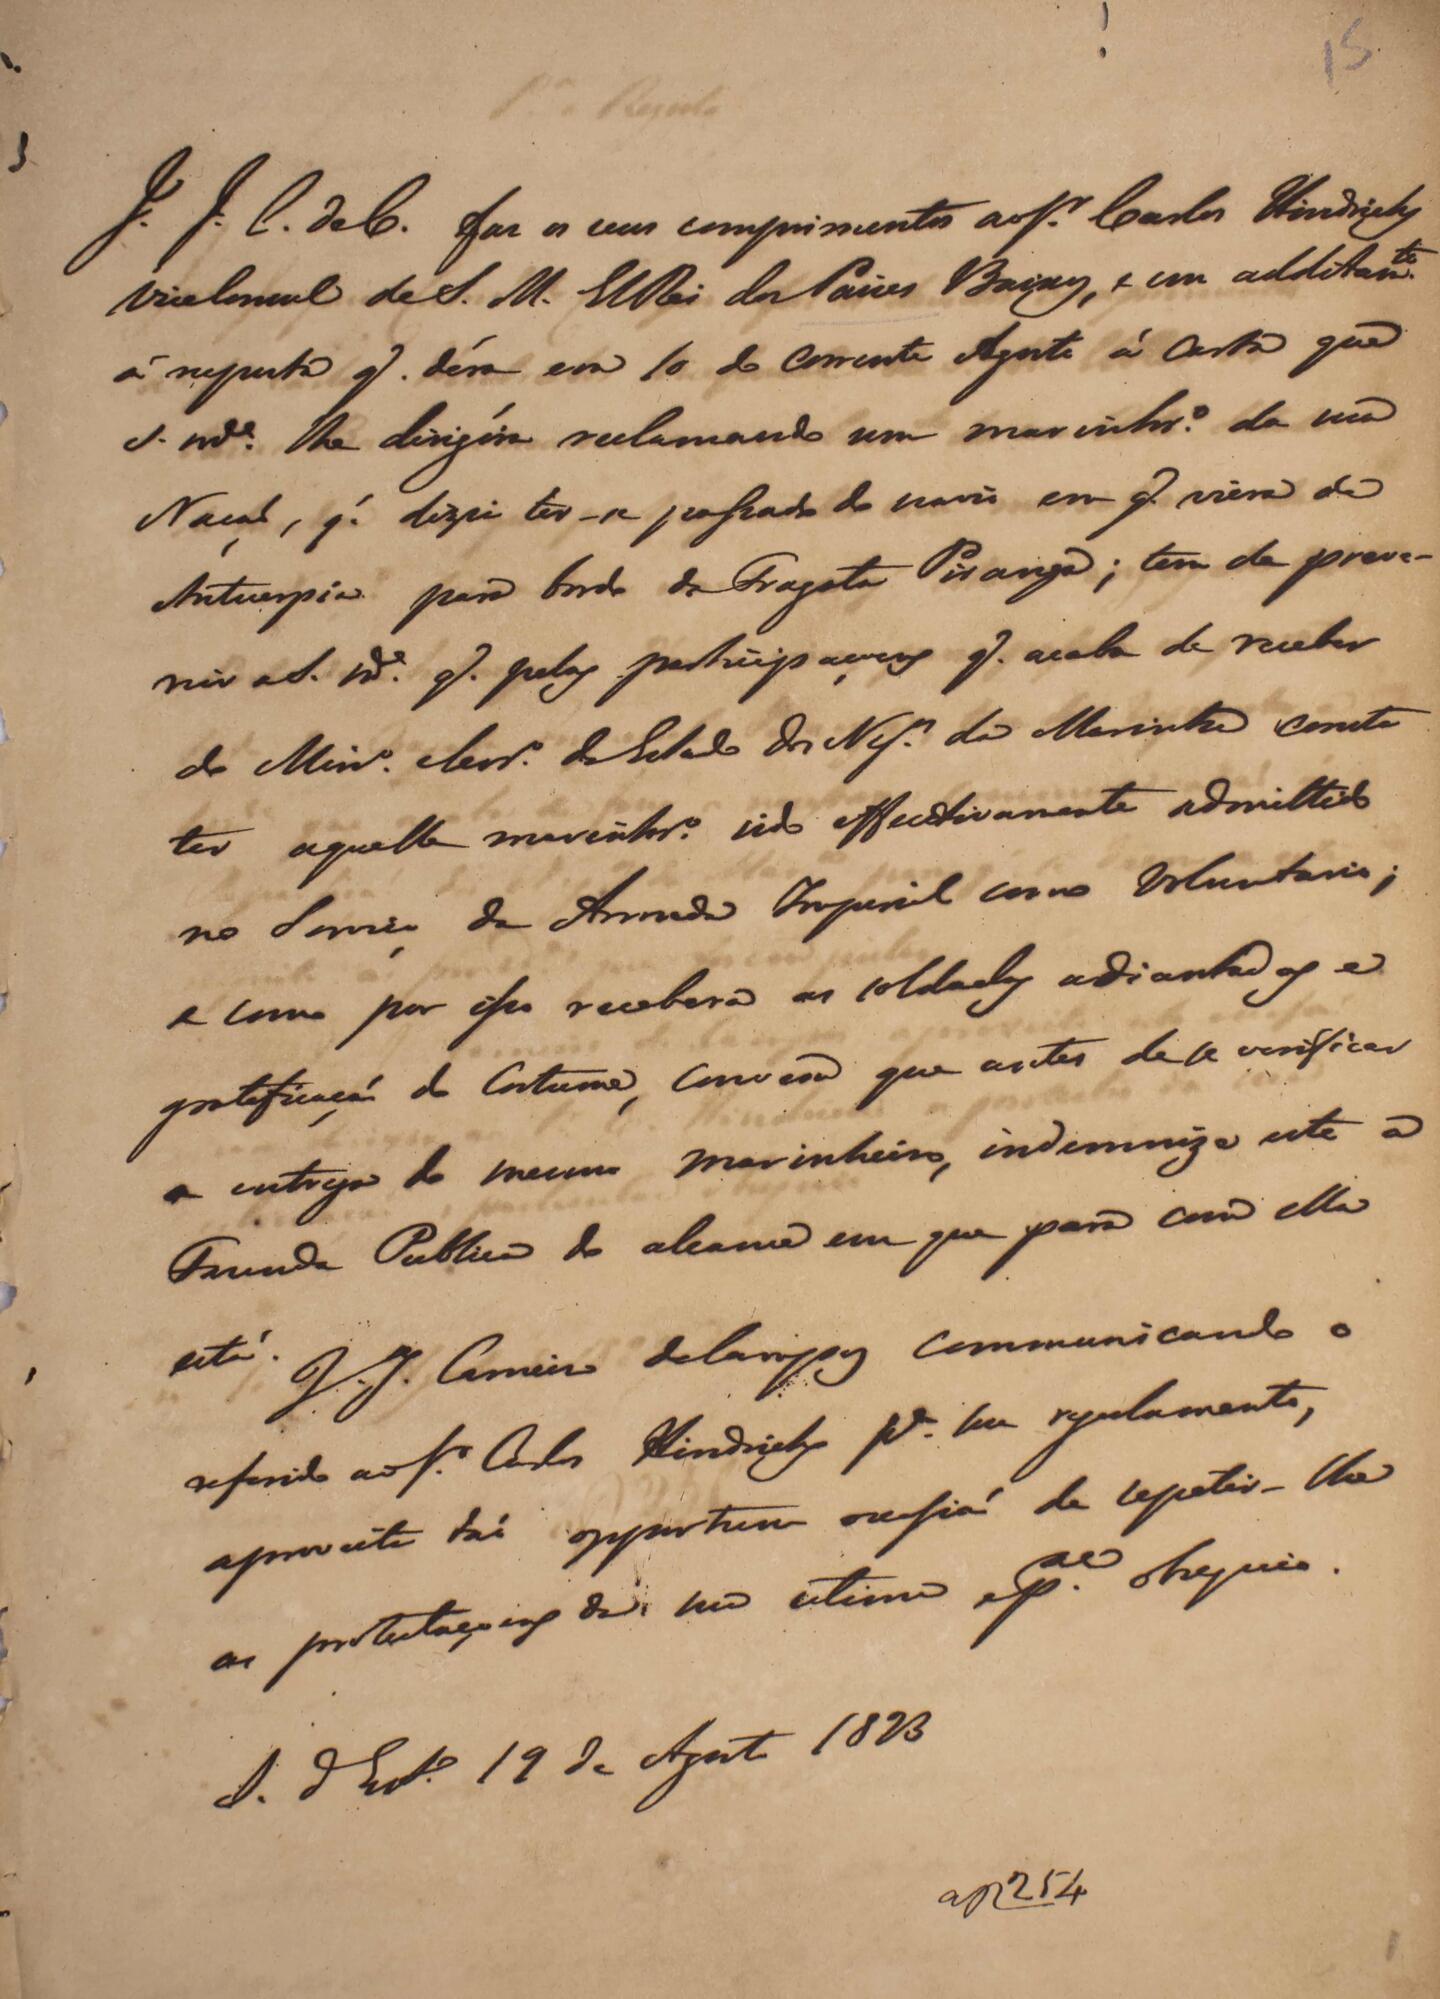 15
J. J. C. de C. faz os seus comprimentos ao Sr. Carlos Hindricks
ViceConsul de S. M. ElRei dos Paises Baixos, e em additamto.
á resposta q. déra em 10 do corrente Agosto á Carta que
S. Mce. lhe dirigira reclamando um marinhro. da sua
Naçaõ, q. dizia ter-se passado do navio em q. viera de
Antuerpia para bordo da Fragata Piranga; tem de preve-
nir a S. Mce. q. pelas participaçoens q. acaba de receber
do Minro. e Secro. de Estado dos Negos. da Marinha consta
ter aquelle marinhro. sido effectivamente admittido
no Serviço da Armada Imperial como Voluntario;
e como por isso recebera os soldados adiantados e
gratificaçaõ do Costume, convem que antes de se verificar
a entrega do mesmo marinheiro, indemnize este a
Fazenda Publica do alcance em que para com ella
está. J. J. Carneiro de Campos communicando o
referido ao Sr. Carlos Hindricks pa. seu regulamento,
aproveita taõ opportuna occasiaõ de repetir-lhe
as protestaçoens da sua estima e obsequio.
S. d'Esto. 19 de Agosto 1823
ap 254